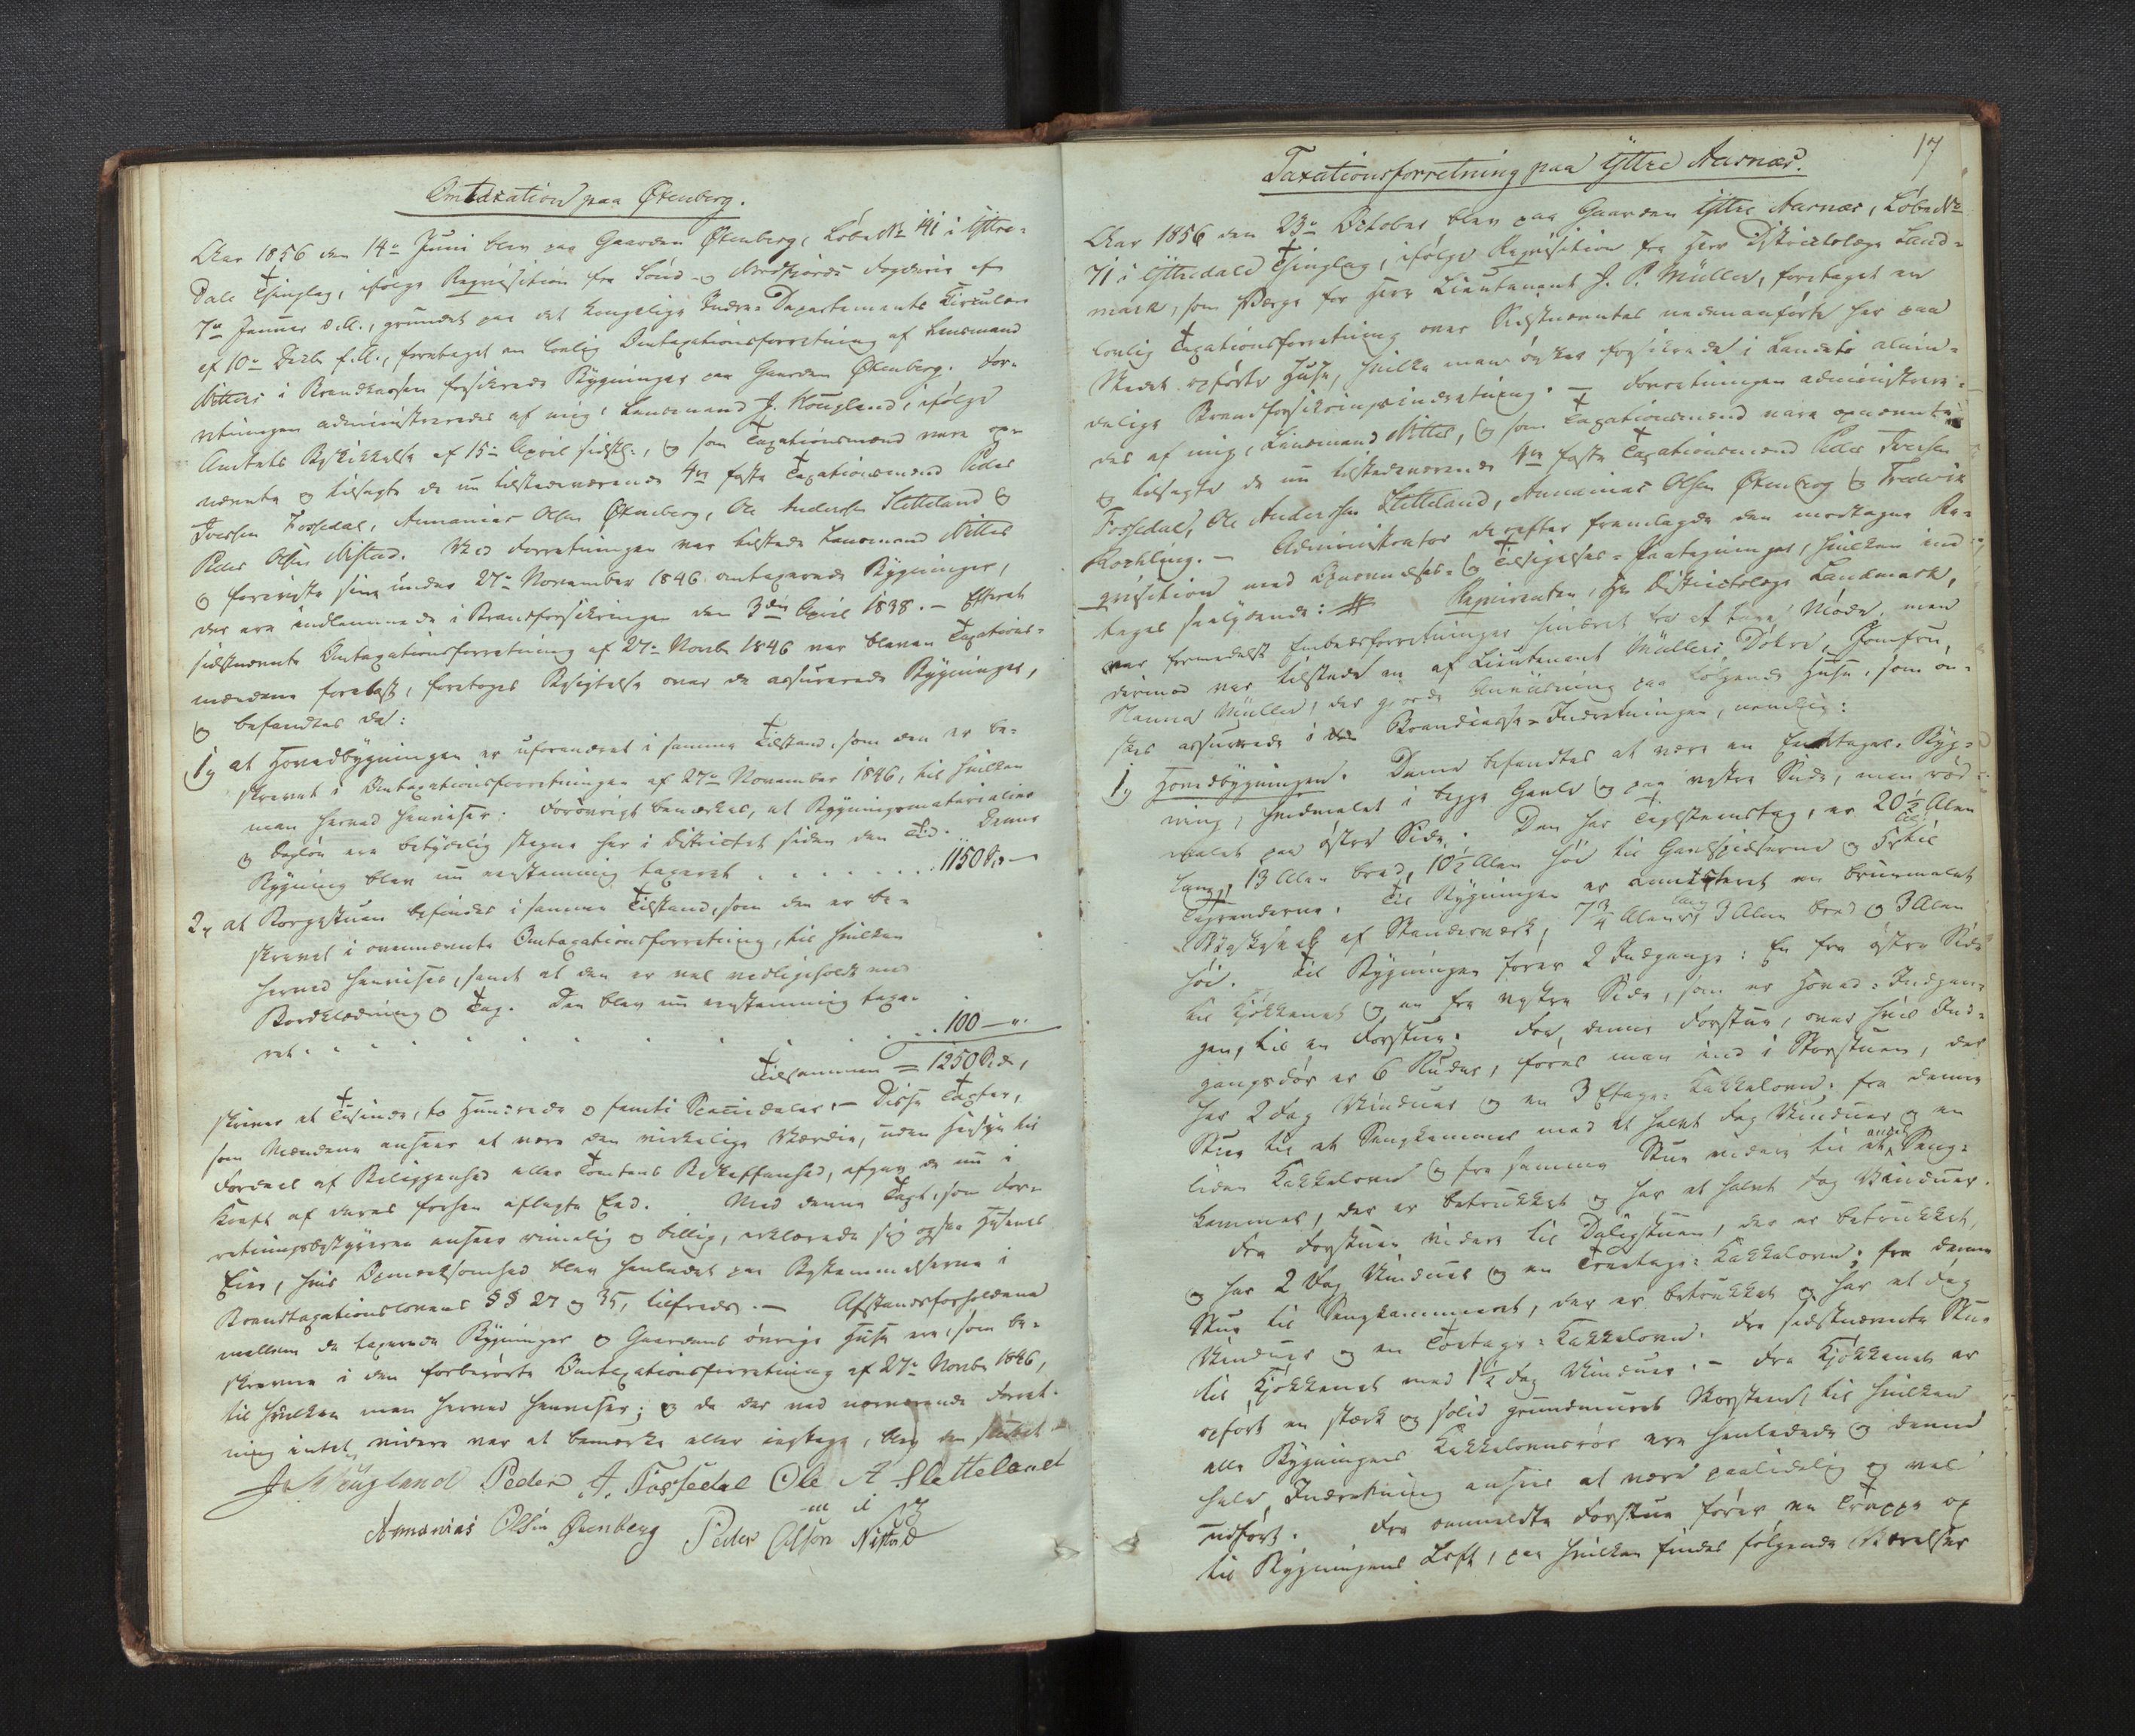 Omtaxation paa Øxenberg.
Aar 1856 den 14de Juni blev paa Gaarden Øxenberg, Løbe No 141 i Yttre-
dale Thinglag, ifølge Reqvisition fra Sønd- og Nordfjords Fogderie af
7de Januar d. A., grundet paa det Kongelige Indre-Departements Circulære
af 10de Decbr f. A., foretaget en lovlig Omtaxationsforretning af Lensmand
Nitters i Brandkassen forsikrede Bygninger paa Gaarden Øxenberg. For-
retningen administreredes af mig, Lensmand J. Kougland, ifølge
Amtets Beskikkelse af 15de April sidstl., og som Taxationsmænd vare op-
nævnte og tilsagte de nu tilstedeværende 4re faste Taxationsmænd Peder
Iversen Fossedal, Annanias Olsen Øxenberg, Ole Andersen Sletteland og
Peder Olsen Nistad. Ved Forretningen var tilstede Lensmand Nitter
og foreviste sine under 27de November 1846 omtaxerede Bygninger,
der ere indlemmede i Brandforsikringen den 3die April 1838. – Efterat
sidstnævnte Omtaxationsforretning af 27de Novbr 1846 var bleven Taxations-
mændene forelæst, foretoges Besigtelse over de assurerede Bygninger,
og befandtes da:
1, at Hovedbygningen er uforandret i samme Tilstand, som den er be-
skrevet i Omtaxationsforretningen af 27de November 1846, til hvilken
man herved henviser. Forøvrigt bemærkes, at Bygningsmaterialier
og Dagløn ere betydelig stegne her i Districtet siden den Tid. Denne
Bygning blev nu eenstemmig taxeret . . . . . . . 1150 Spd –
2, at Borgestuen befindes i samme Tilstand, som den er be-
skrevet i ovennævnte Omtaxationsforretning, til hvilken
herved henvises, samt at den er vel vedligeholdt med
Bordklædning og Tag. Den blev nu eenstemmig taxe-
ret . . . . . . . . . 100 – ".
Tilsammen = 1250 Spd,
skriver et Tusinde, to Hundrede og femti Speciedaler. – Disse Taxter,
som Mændene ansaae at være den virkelige Værdie, uden Hensyn til
Fordeel af Beliggenhed eller Tomtens Beskaffenhed, afgav de nu i
Kraft af deres forhen aflagte Eed. Med denne Taxt, som For-
retningsbestyreren ansaae rimelig og billig, erklærede sig ogsaa Husenes
Eier, hvis Opmærksomhed blev henledet paa Bestemmelserne i
Brandtaxationslovens §§ 27 og 35, tilfreds. – Afstandsforholdene
mellem de taxerede Bygninger og Gaardens øvrige Huse ere, som be-
skrevne i den forberørte Omtaxationsforretning af 27de Novbr 1846,
til hvilken man herved henviser; og da der ved nærværende Forret-
ning intet videre var at bemærke eller iagttage, blev den sluttet. –
J. Kougland Peder I. Fossedal Ole A. Sletteland
Annanias Olsen Øxenberg Peder Olsen Nistad
17
Taxationsforretning paa Yttre Aarnæs.
Aar 1856 den 23de October blev paa Gaarden Yttre Aarnæs, Løbe No
71 i Yttredals Thinglag, ifølge Reqvisition fra Herr Districtslæge Land-
mark, som Værge for Herr Lieutenant J. P. Müller, foretaget en
lovlig Taxationsforretning over Sidstnævntes nedenanførte her paa
Stedet opførte Huse, hvilke man ønsker forsikrede i Landets almin-
delige Brandforsikringsindretning. – Forretningen administrere-
des af mig, Lensmand Nitter, og som Taxationsmænd vare opnævnte
og tilsagte de nu tilstedeværende 4re faste Taxationsmænd Peder Iversen
Fossedal, Ole Andersen Sletteland, Annanias Olsen Øxenberg og Frederik
Koehling. – Administrator derefter fremlagde den modtagne Re-
qvisition med Opnævnelses- og Tilsigelses-Paategninger, hvilken ind-
tages saalydende: # Reqvirenten, Hr Districtslæge Landmark,
var formedelst Embedsforretninger hindret fra at tage Møde, men
derimod var tilstede en af Lieutenant Müllers Døtre, Jomfru
Hanna Müller, der gjorde Anviisning paa følgende Huse, som øn-
skes assurerede i Brandcasse-Indretningen, nemlig:
1, Hovedbygningen. Denne befandtes at være en Eenetages-Byg-
ning, hvidmalet i begge Gavle og paa vestre Side, men rød-
malet paa østre Side. Den har Teglsteenstag, er 20 1/2 Alen
lang, 13 Alen bred, 10 1/2 Alen høi til Gavlspidserne og 5 til
Tagrenderne. Til Bygningen er annecteret en bruunmalet
Bislag af Standerværk, 7 3/4 Alen lang, 3 Alen bred og 3 Alen
høi. Til Bygningen fører 2 Indgange: En fra østre Side
til Kjøkkenet og en fra vestre Side, som er Hoved-Indgan-
gen, til en Forstue. Fra denne Forstue, over hvis Ind-
gangsdør er 6 Ruder, føres man ind i Storstuen, der
har 2 Fag Vinduer og en 3 Etages-Kakkelovn; fra denne
Stue til et Sengkammer med et halvt Fag Vinduer og en
liden Kakkelovn og fra samme Stue videre til et andet Seng-
kammer, der er betrukket og har et halvt Fag Vinduer.
Fra Forstuen videre til Dagligstuen, der er betrukket,
og har 2 Fag Vinduer og en Treetages-Kakkelovn; fra denne
Stue til Sengkammeret, der er betrukket og har et Fag
Vinduer og en Toetages-Kakkelovn. Fra sidstnævnte Stue
til Kjøkkenet med 1 1/2 Fag Vinduer. – Fra Kjøkkenet er
opført en stærk og solid grundmuret Skorsteen, til hvilken
alle Bygningens Kakkelovnsrør ere henledede og denne
hele Indretning ansees at være paalidelig og vel
udført. Fra ommeldte Forstue fører en Trappe op
til Bygningens Loft, paa hvilken findes følgende Værelser